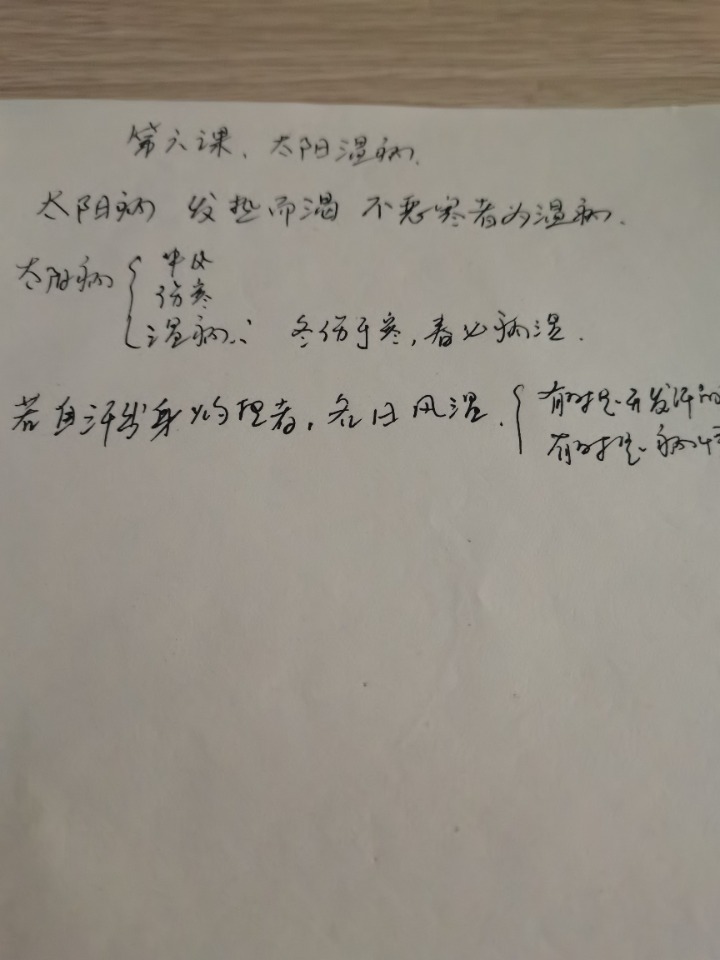 第六课、太阳温病.
太阳病 发热而渴 不恶寒者为温病.
太阳病 { 中风
伤寒
温病: 冬伤于寒,春必病温.
若自汗出身灼热者,名曰风温. { 有时是 发汗
有时是 病